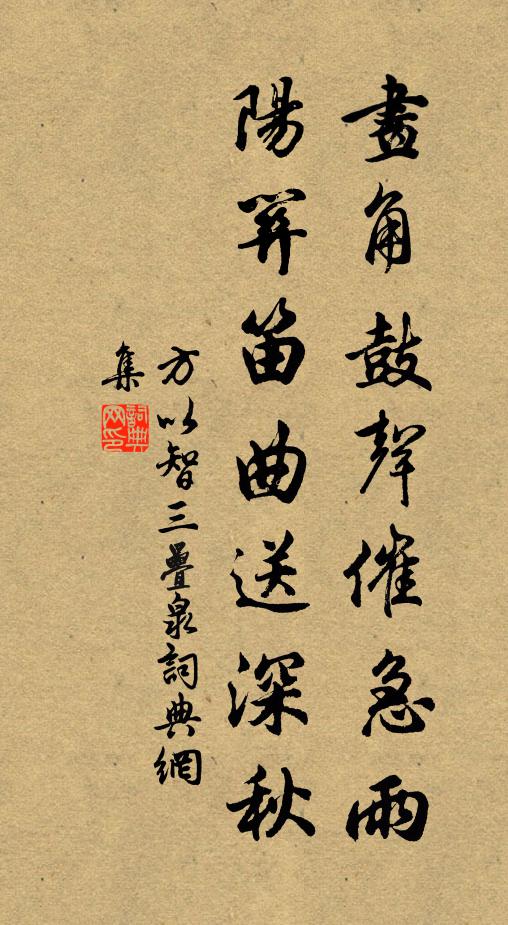 畫角鼓聲催急雨
陽關笛曲送深秋
方以智三疊泉詞典網
集
詞典網印